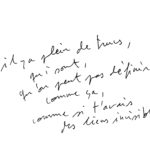 il y a plein de trucs,
qui sont,
qu'on peut pas définir
comme ça,
comme si t'avais
des liens invisibl